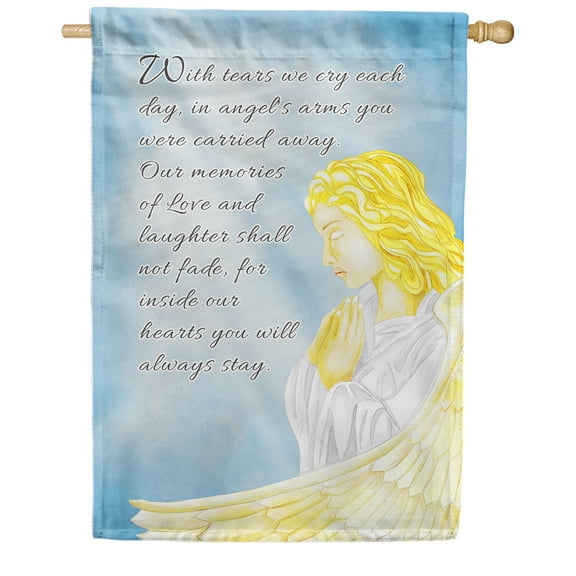 With tears we cry each
day, in angel's arms you
were carried away.
Our memories
of Love and
laughter shall
not fade, for
inside our
hearts you will
always stay.